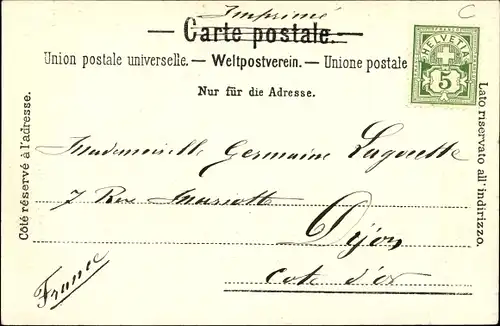 Imprimé
— Carte postale. —
Union postale universelle. — Weltpostverein. — Unione postale
Nur für die Adresse.
C
HELVETIA
5
FRANCO
Côté réservé à l'adresse.
Lato riservato all'indirizzo.
Mademoiselle Germaine
7 Rue Mariotte
Dijon
Cote d'or
France